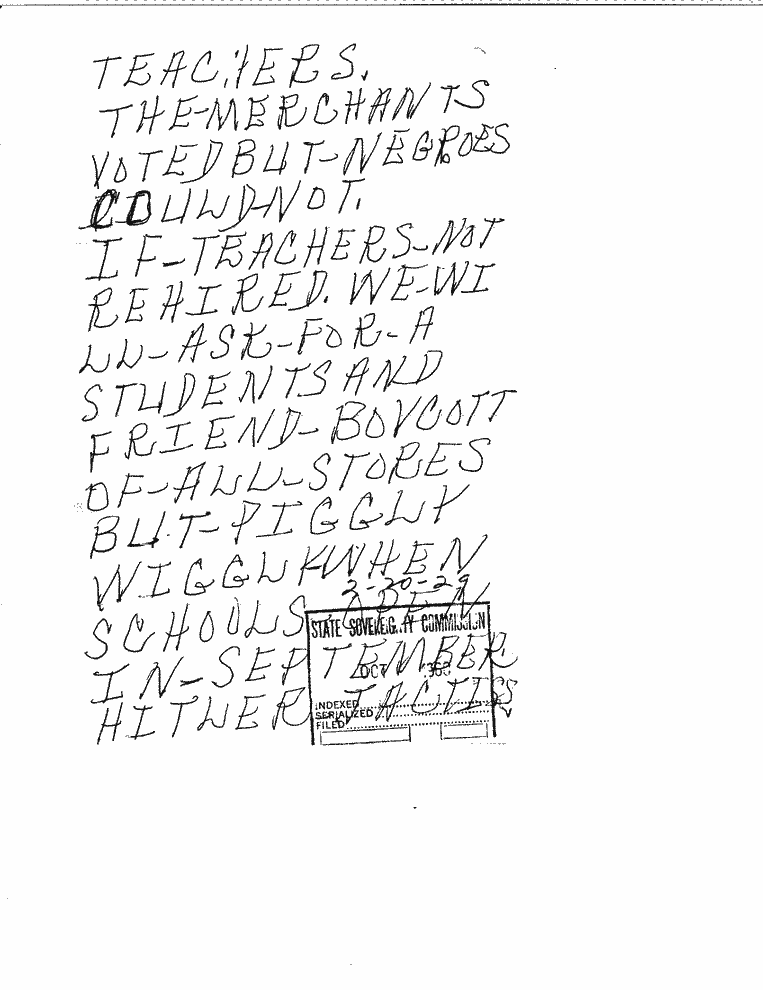 TEACHERS.
THE-MERCHANTS
VOTED BUT-NEGROES
COULD-NOT.
IF-TEACHERS-NOT
REHIRED. WE-WI
LL-ASK-FOR-A
STUDENTS AND
FRIEND-BOYCOTT
OF-ALL-STORES
BUT-PIGGLY
WIGGLY WHEN
2-20-29
SCHOOLS OPEN
STATE SOVEREIGNTY COMMISSION
IN-SEPTEMBER
OCT
HITLER TACTICS
INDEXED
SERIALIZED
FILED